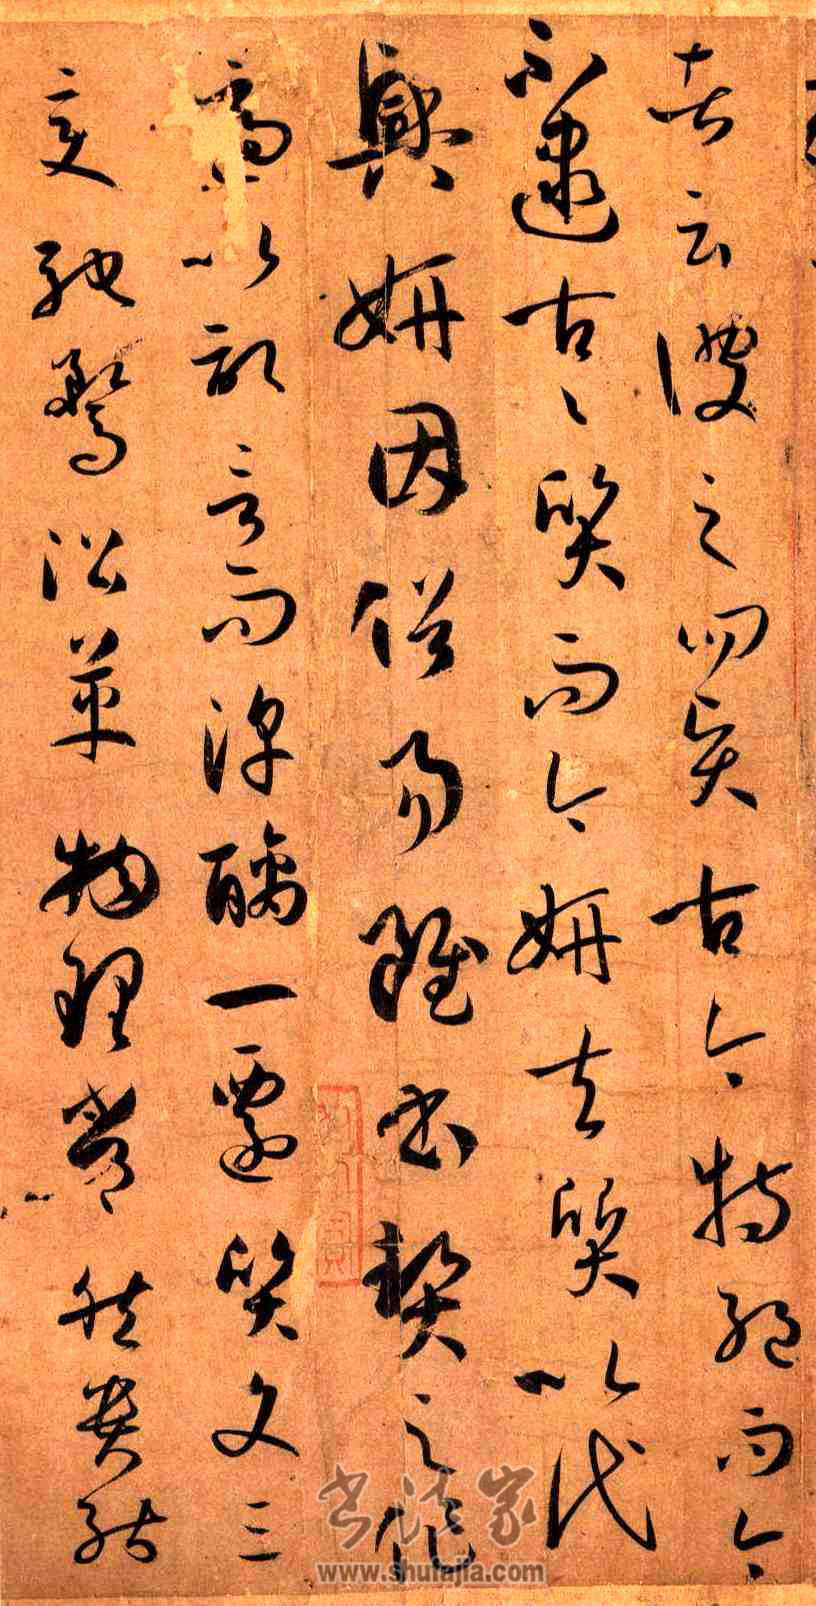 者云彼之四賢古今特絕而今
不逮古〻質而今妍夫質以代
興妍因俗易雖書契之作
適以記言而淳醨一遷質文三
變馳騖沿革物理常然貴能
书法家
www.shufajia.com